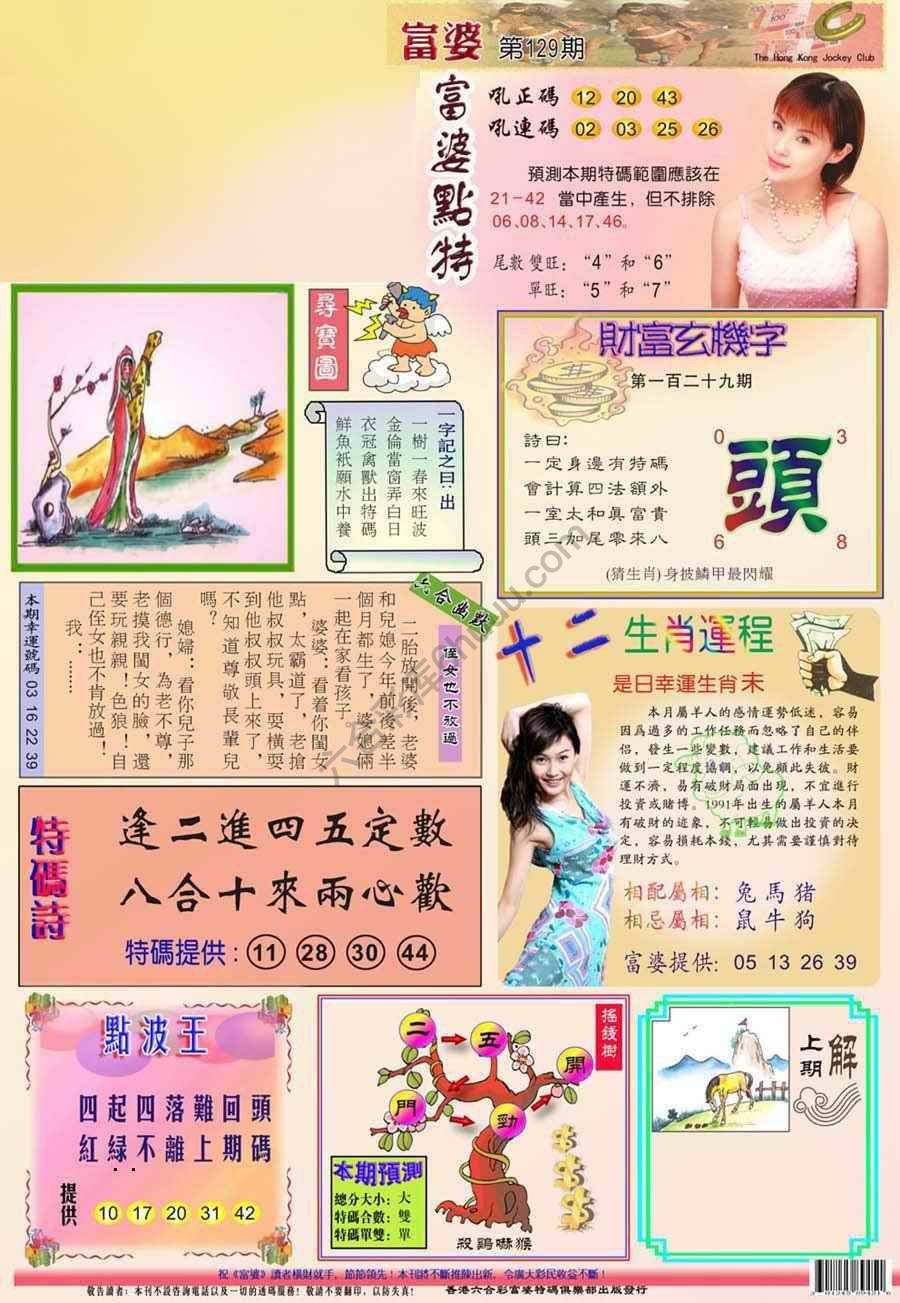 富婆 第129期
The Hong Kong Jockey Club
富婆點特
吼正碼 12 20 43
吼連碼 02 03 25 26
預測本期特碼範圍應該在
21-42 當中產生，但不排除
06、08、14、17、46。
尾數 雙旺：“4”和“6”
單旺：“5”和“7”
尋寶圖
一字記之曰：出
一樹一春來旺波
金倫當窗弄白日
衣冠禽獸出特碼
鮮魚祇願水中養
財富玄機字
第一百二十九期
詩曰：
一定身邊有特碼
會計算四法額外
一室太和真富貴
頭三加尾零來八
0 3
頭
6 8
(猜生肖)身披鱗甲最閃耀
六合幽默
侄女也不放過
二胎放開後，老婆
和兒媳今年前後差半
個月都生了，婆媳倆
一起在家看孩子。
婆婆：看着你閨女
點，太霸道了，老搶
他叔叔玩具，耍橫耍
到他叔叔頭上來了，
不知道尊敬長輩兒
嗎？
媳婦：看你兒子那
個德行，為老不尊，
老摸我閨女的臉，還
要玩親親！色狼！自
己侄女也不肯放過！
我：……
本期幸運號碼 03 16 22 39
十二生肖運程
是日幸運生肖未
本月屬羊人的感情運勢低迷，容易
因為過多的工作任務而忽略了自己的伴
侶，發生一些變數，建議工作和生活要
做到一定程度協調，以免顧此失彼。財
運不濟，易有破財局面出現，不宜進行
投資或賭博。1991年出生的屬羊人本月
有破財的迹象，不可輕易做出投資的決
定，容易損耗本錢，尤其需要謹慎對待
理財方式。
相配屬相：兔 馬 猪
相忌屬相：鼠 牛 狗
富婆提供：05 13 26 39
特碼詩
逢二進四五定數
八合十來兩心歡
特碼提供：11 28 30 44
點波王
四起四落難回頭
紅緑不離上期碼
提供 10 17 20 31 42
搖錢樹
二 五 開
門 勁
本期預測
總分大小：大
特碼合數：雙
特碼單雙：單
殺鷄嚇猴
上期解
祝《富婆》讀者橫財就手，節節領先！本刊將不斷推陳出新，令廣大彩民收益不斷！
敬告讀者：本刊不設咨詢電話以及一切的透碼服務！敬請不要翻印，以防失真！ 香港六合彩富婆特碼俱樂部出版發行